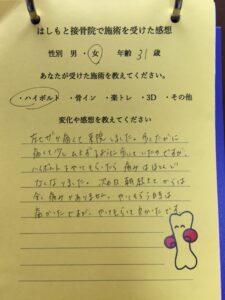 はしもと接骨院で施術を受けた感想
性別 男・女 年齢 31 歳
あなたが受けた施術を教えてください。
・ハイボルト ・骨イン ・楽トレ ・3D ・その他
変化や感想を教えてください
左ヒザが痛くて来院しました。歩くたびに
痛くて少し ように歩いていたのですが、
ハイボルトをやってもらったら痛みはほとんど
なくなりました。次の日 朝起きてからは
全く痛みがありません。やってもらう時は
痛かったですが、やってもらって良かったです。